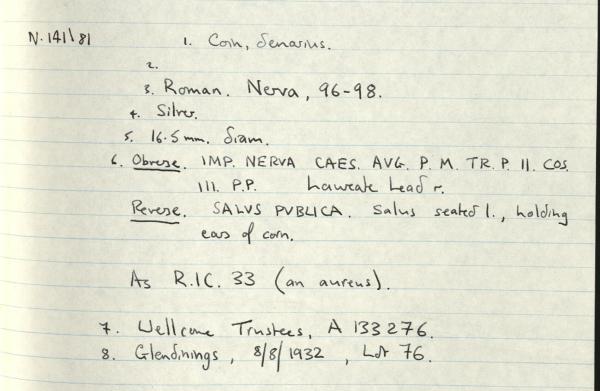 N.141\81 1. Coin, denarius.
2.
3. Roman. Nerva, 96-98.
4. Silver.
5. 16.5 mm. diam.
6. Obverse. IMP. NERVA CAES. AVG. P. M. TR. P. II. COS.
III. P.P. Laureate head r.
Reverse. SALVS PVBLICA. Salus seated l., holding
ears of corn.
As R.I.C. 33 (an aureus).
7. Wellcome Trustees, A 133276.
8. Glendinings, 8/8/1932, Lot 76.